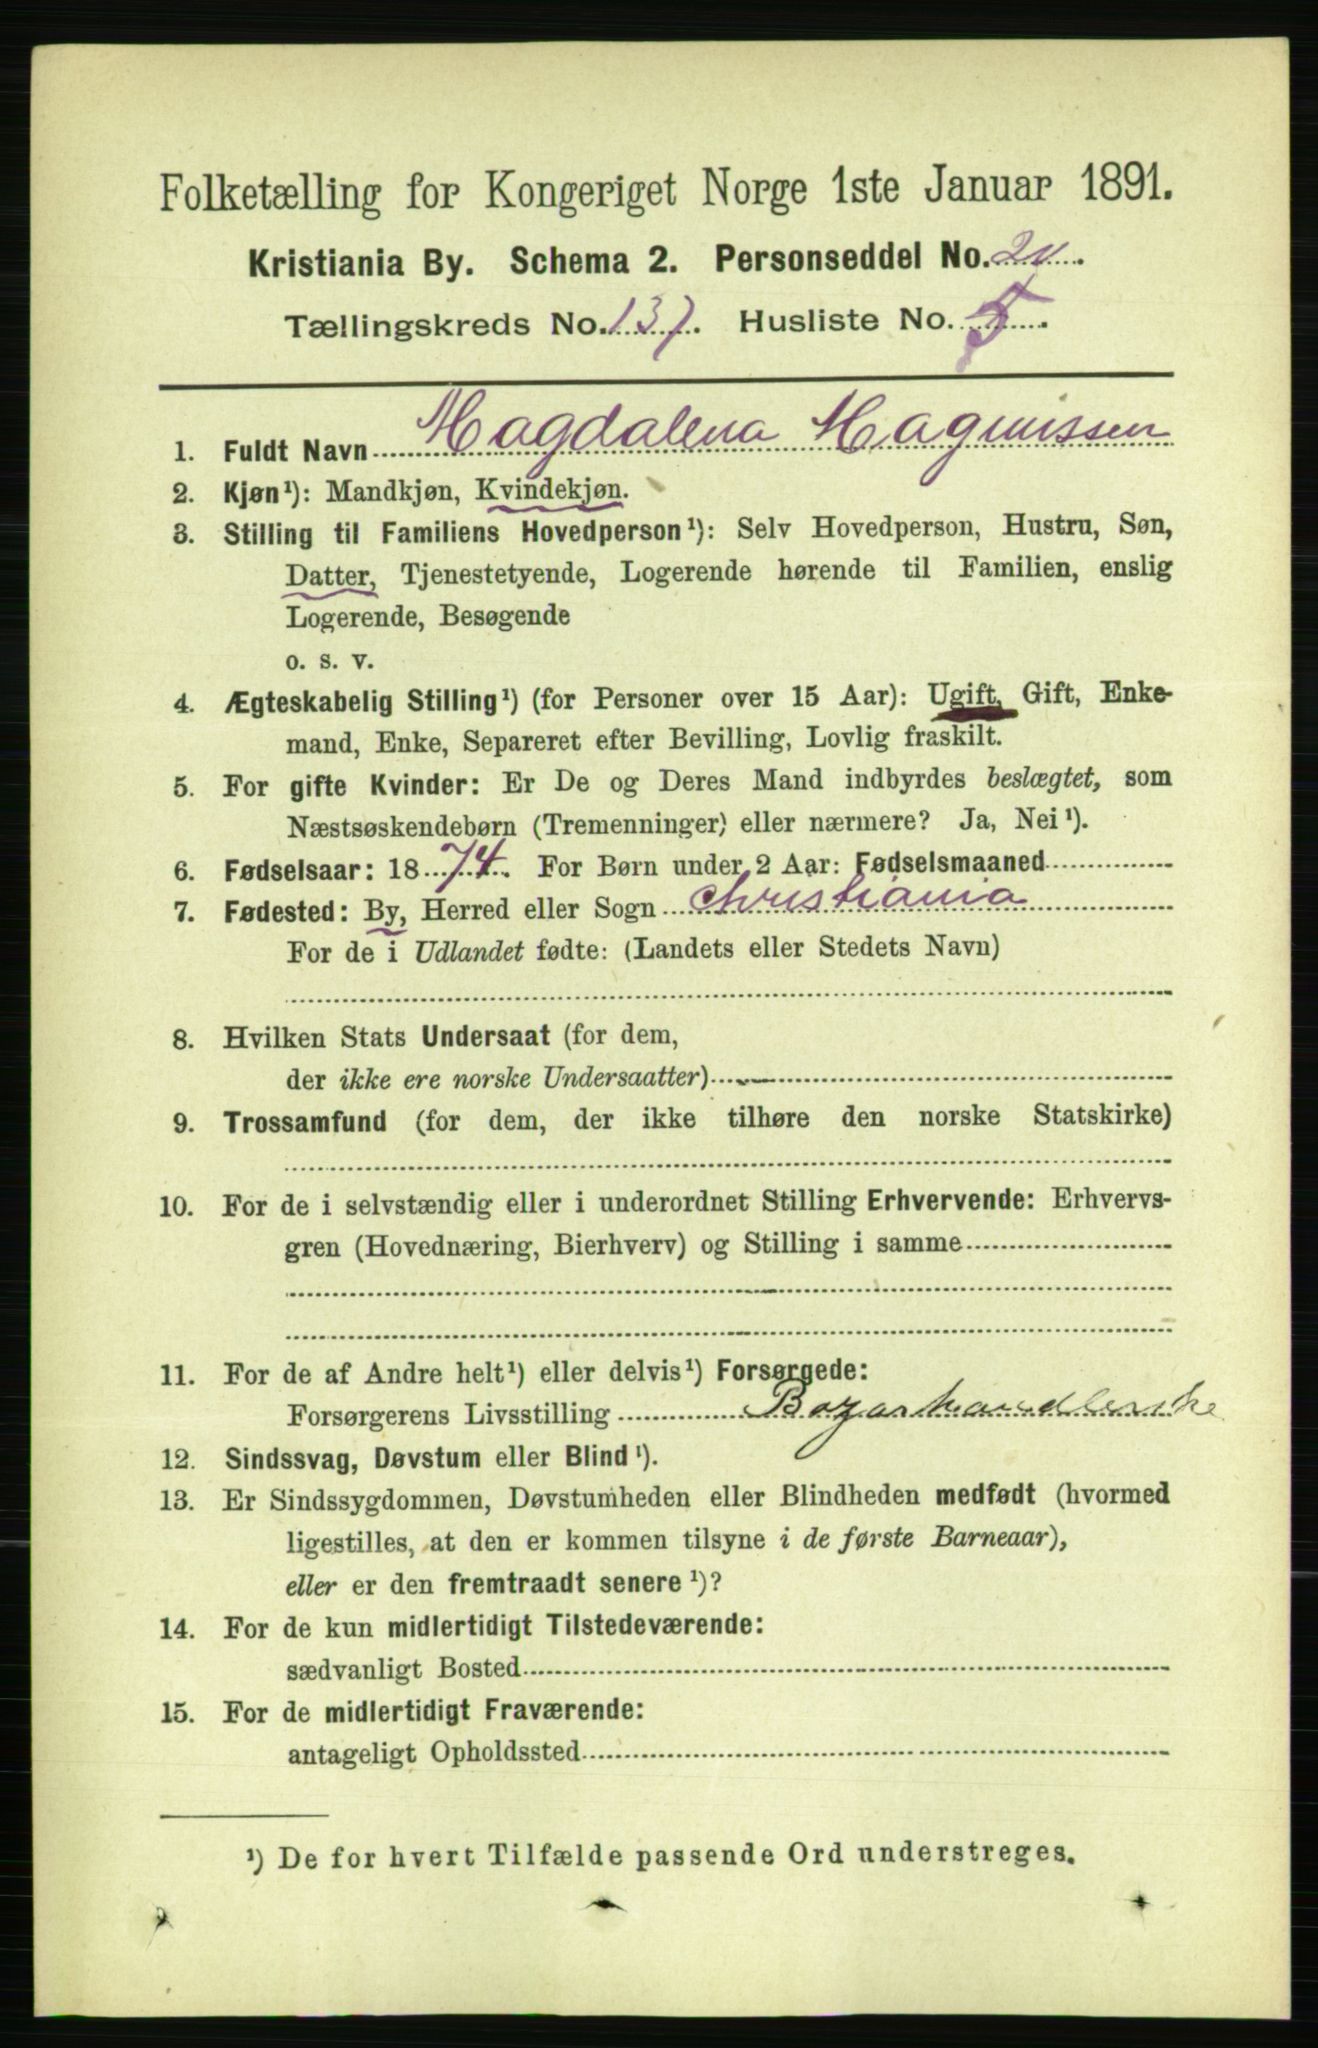 Folketælling for Kongeriget Norge 1ste Januar 1891.
Kristiania By. Schema 2. Personseddel No. 20.
Tællingskreds No. 137. Husliste No. 5.
1. Fuldt Navn Magdalena Magnussen
2. Kjøn¹): Mandkjøn, Kvindekjøn.
3. Stilling til Familiens Hovedperson¹): Selv Hovedperson, Hustru, Søn,
Datter, Tjenestetyende, Logerende hørende til Familien, enslig
Logerende, Besøgende
o. s. v.
4. Ægteskabelig Stilling¹) (for Personer over 15 Aar): Ugift, Gift, Enke-
mand, Enke, Separeret efter Bevilling, Lovlig fraskilt.
5. For gifte Kvinder: Er De og Deres Mand indbyrdes beslægtet, som
Næstsøskendebørn (Tremenninger) eller nærmere? Ja, Nei¹).
6. Fødselsaar: 1874. For Børn under 2 Aar: Fødselsmaaned
7. Fødested: By, Herred eller Sogn Christiania
For de i Udlandet fødte: (Landets eller Stedets Navn)
8. Hvilken Stats Undersaat (for dem,
der ikke ere norske Undersaatter)
9. Trossamfund (for dem, der ikke tilhøre den norske Statskirke)
10. For de i selvstændig eller i underordnet Stilling Erhvervende: Erhvervs-
gren (Hovednæring, Bierhverv) og Stilling i samme
11. For de af Andre helt¹) eller delvis¹) Forsørgede:
Forsørgerens Livsstilling Bazarhandlerske
12. Sindssvag, Døvstum eller Blind¹).
13. Er Sindssygdommen, Døvstumheden eller Blindheden medfødt (hvormed
ligestilles, at den er kommen tilsyne i de første Barneaar),
eller er den fremtraadt senere¹)?
14. For de kun midlertidigt Tilstedeværende:
sædvanligt Bosted
15. For de midlertidigt Fraværende:
antageligt Opholdssted
¹) De for hvert Tilfælde passende Ord understreges.